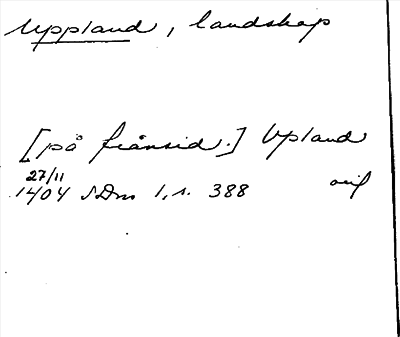 Uppland, landskap
[på frånsid.] Vpland
27/11
1404 SDns 1, s. 388 avs